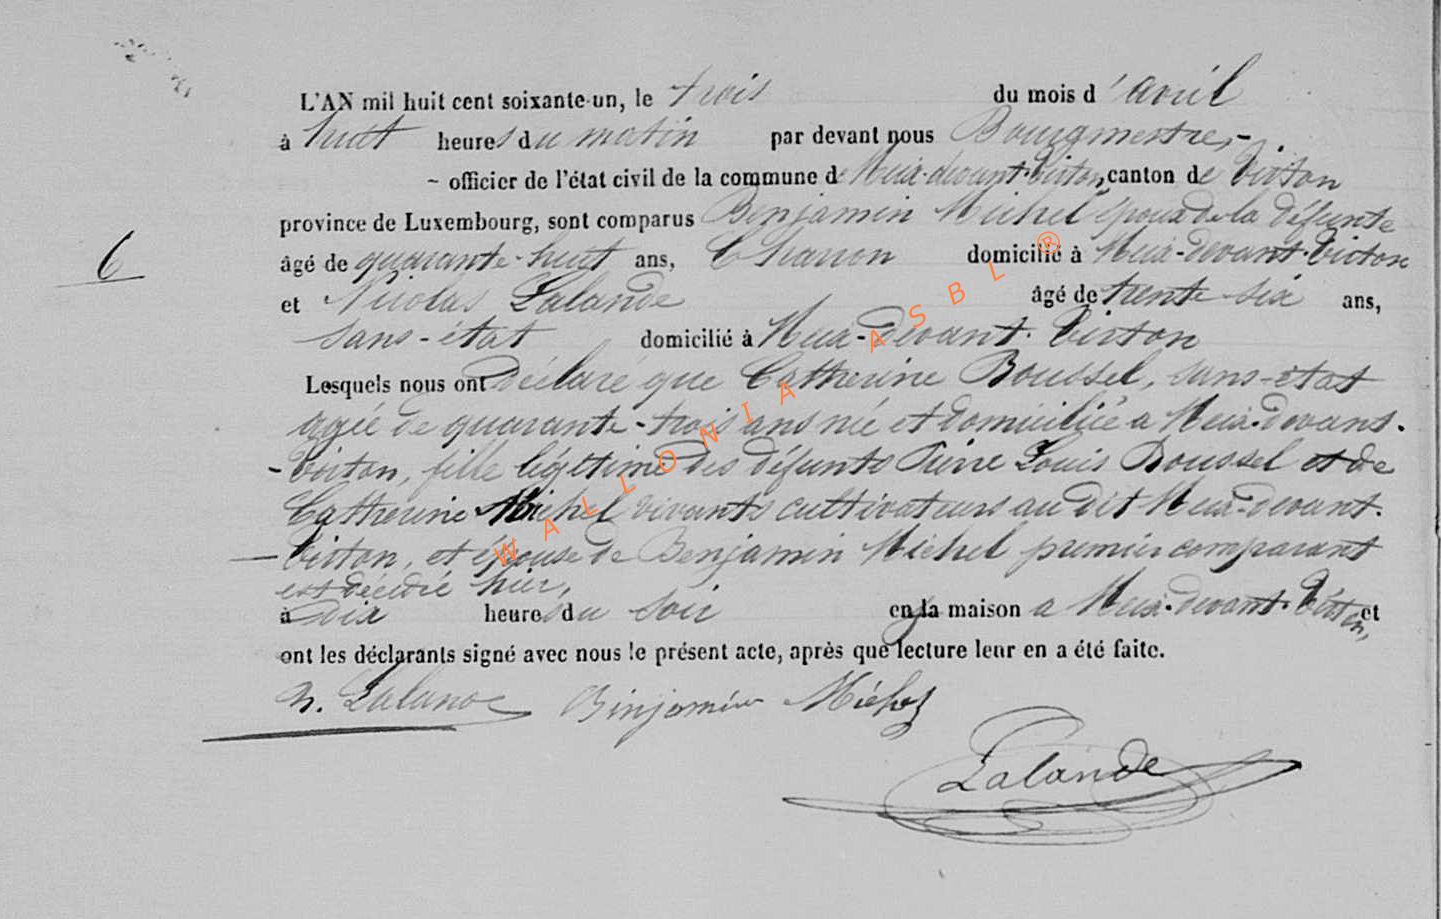 L'AN mil huit cent soixante-un, le trois du mois d'avril
à huit heures du matin par devant nous Bourgmestre,-
~ officier de l'état civil de la commune de Meix-devant-Virton, canton de Virton
province de Luxembourg, sont comparus Benjamin Michel époux de la défunte
6 âgé de quarante-huit ans, Charron domicilié à Meix-devant-Virton
et Nicolas Lalande âgé de trente six ans,
sans-état domicilié à Meix-devant-Virton
Lesquels nous ont déclaré que Catherine Roussel, sans-état
agée de quarante-trois ans née et domiciliée a Meix-devant-
-Virton, fille légitime des défunts Pierre Louis Roussel et de
Catherine Michel vivants cultivateurs au dit Meix-devant-
Virton, et épouse de Benjamin Michel premier comparant
est décédée hier,
à dix heures du soir en la maison a Meix-devant-Virton, et
ont les déclarants signé avec nous le présent acte, après que lecture leur en a été faite.
N. Lalande Binjamin Michel
Lalande
WALLONIA ASBL ®